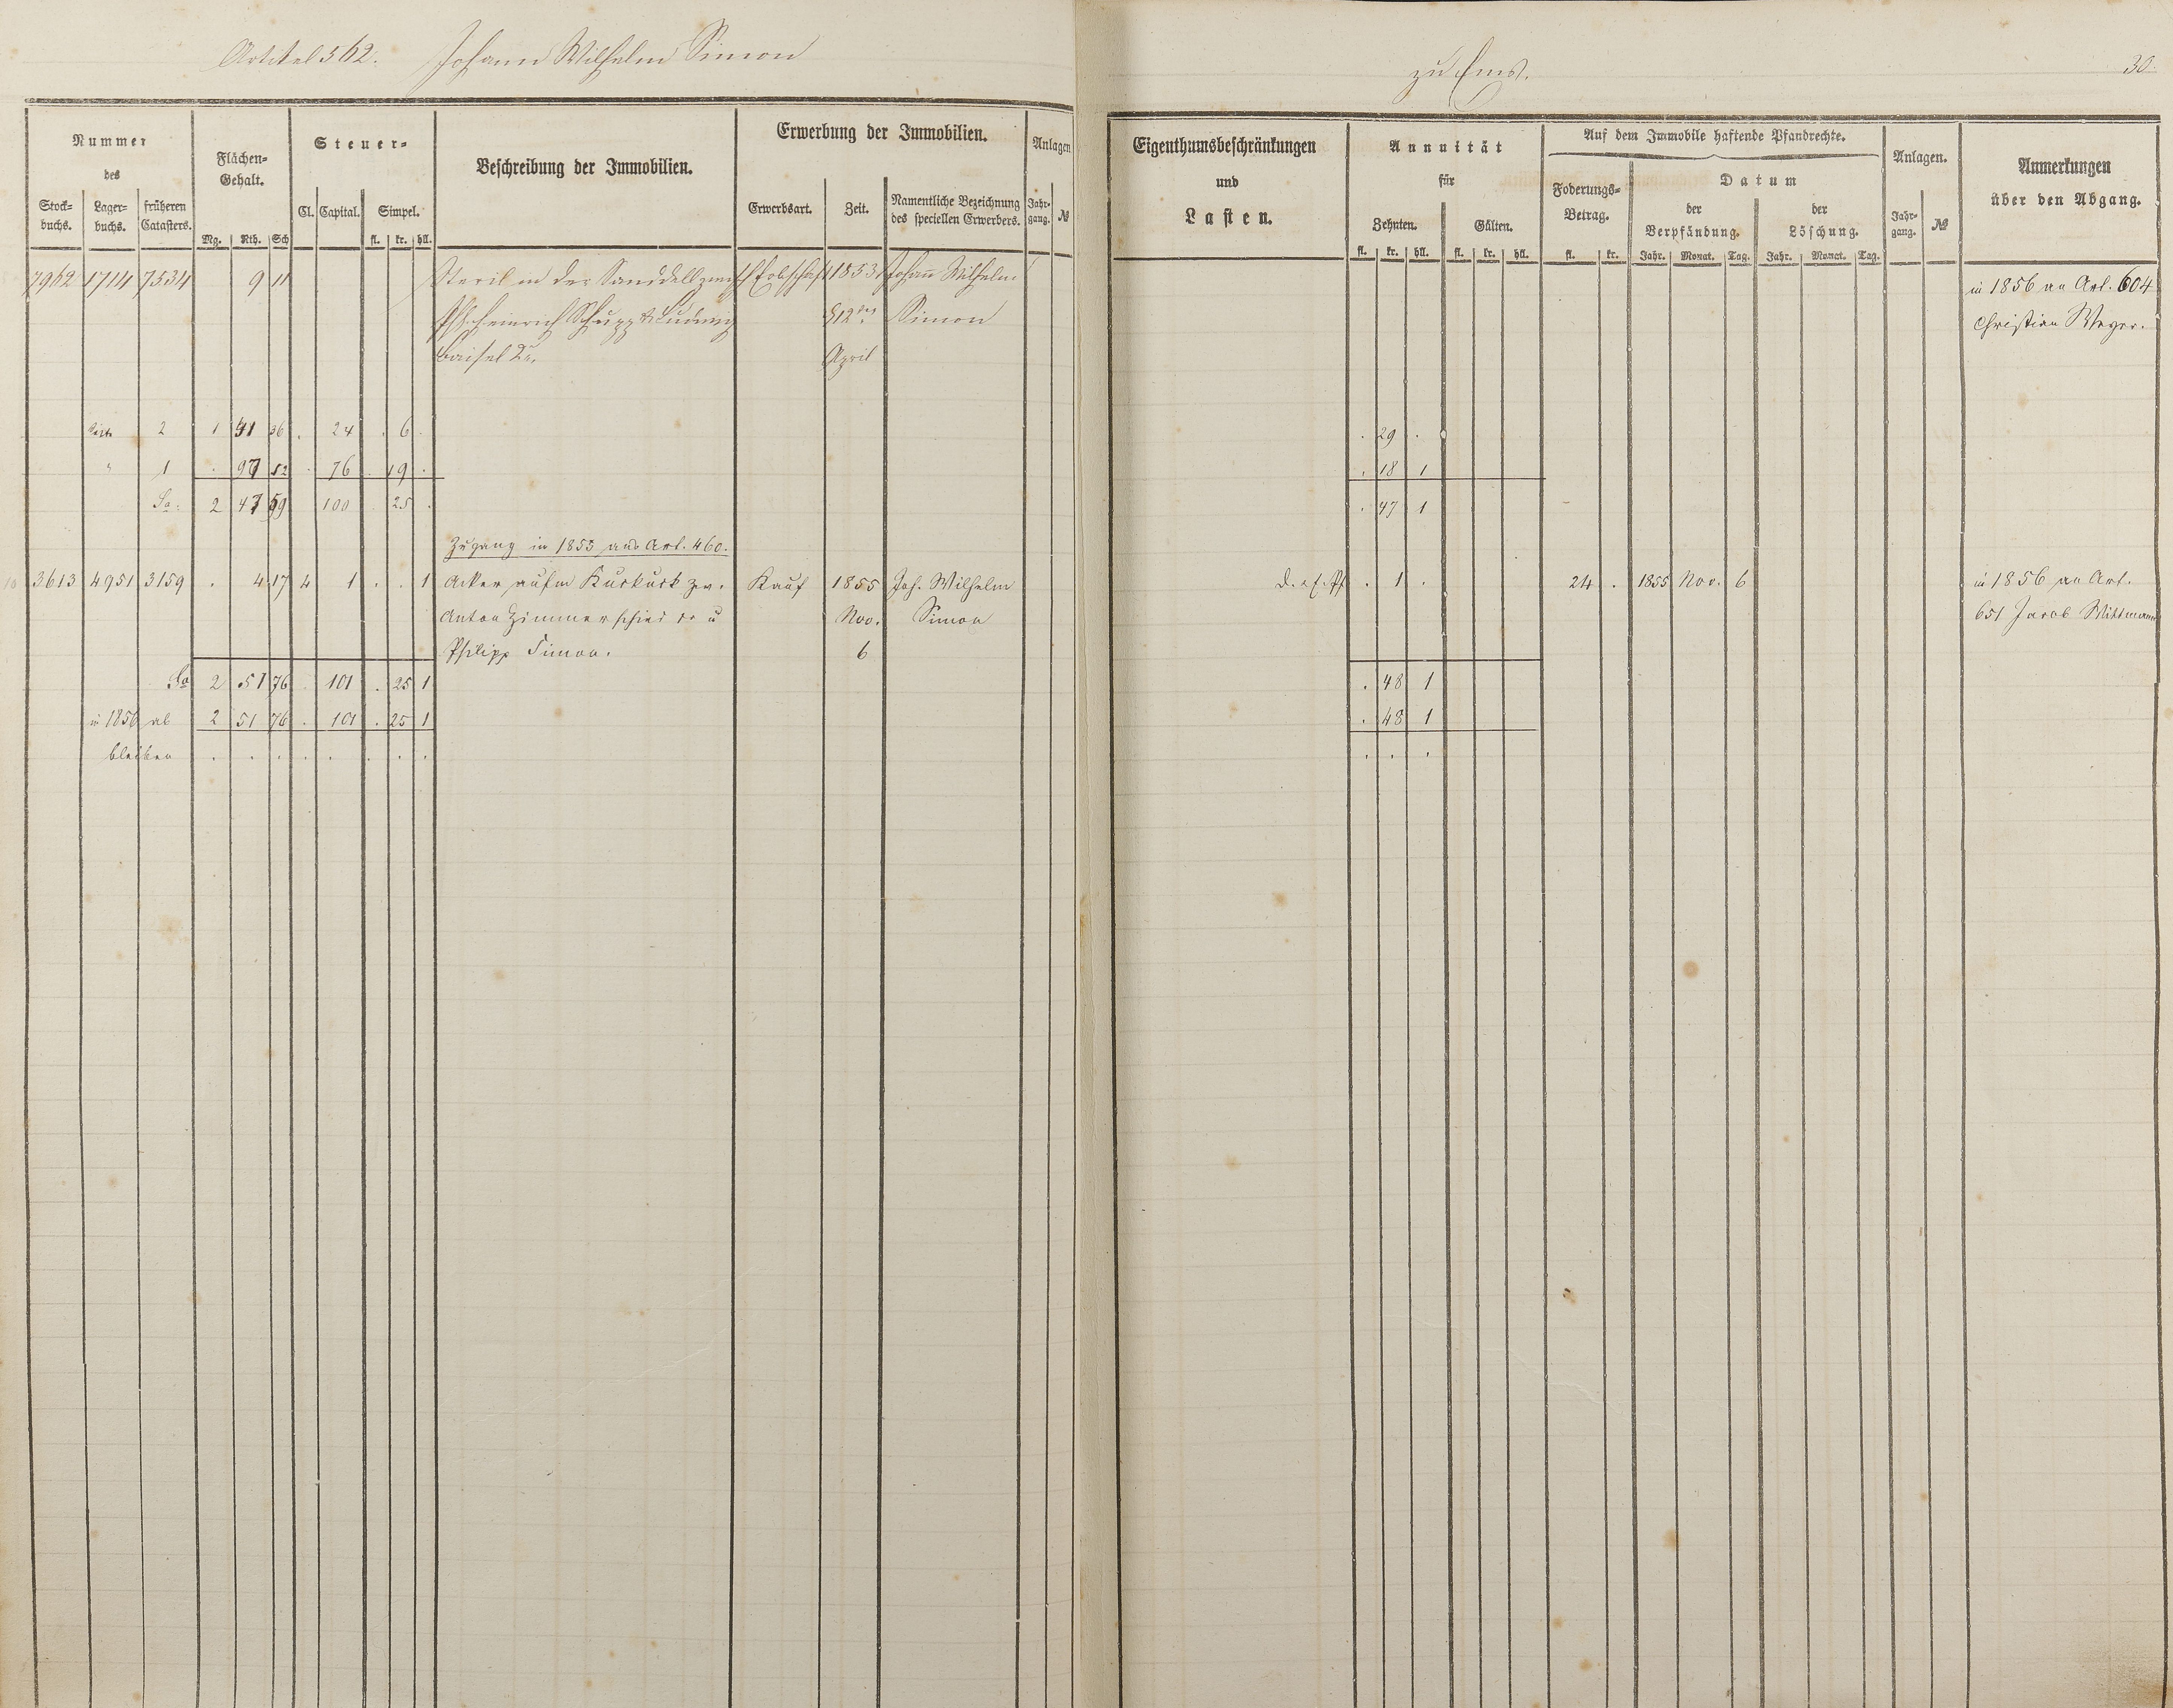 Artikel 562. Johann Wilhelm Simon
zu Ems.
30.
Nummer des
Stock-buchs. Lager-buchs. früheren Catasters.
Flächen-Gehalt.
Mg. Rth. Sch
Steuer-
Cl. Capital. Simpel.
fl. kr. hll.
Beschreibung der Immobilien.
Erwerbung der Immobilien.
Erwerbsart. Zeit. Namentliche Bezeichnung des speciellen Erwerbers.
Anlagen
Jahr-gang. №
Eigenthumsbeschränkungen
und
Lasten.
Annuität
für
Zehnten. Gülten.
fl. kr. hll. fl. kr. hll.
Auf dem Immobile haftende Pfandrechte.
Foderungs-Betrag.
fl. kr.
Datum
der Verpfändung. der Löschung.
Jahr. Monat. Tag. Jahr. Monat. Tag.
Anlagen.
Jahr-gang. №
Anmerkungen
über den Abgang.
7962 1714 7534 9 11 Steril in der Sanddell zwisch Erbschaft 1853 Johann Wilhelm in 1856 an Art. 604
Ph. Heinrich Schupp & Ludwig 12 Simon Christian Weyer.
April
2 1 51 36 . 24 . 6 . . 29 .
" 1 . 97 52 . 76 . 19 . . 18 1
Sa. 2 47 59 100 . 25 . . 47 1
Zugang in 1855 aus Art. 460.
3613 4951 3159 . 4 17 4 1 . . 1 Acker aufm Kuckuck zw. Kauf 1855 Joh. Wilhelm . 1 . 24 . 1855 Nov. 6 in 1856 an Art.
Anton Zimmerschied u Nov. Simon 651 Jacob Wittmann
Philipp Simon. 6
Sa 2 51 76 . 101 . 25 1 . 48 1
in 1856 ab 2 51 76 . 101 . 25 1 . 48 1
bleiben . . . . . . . . . . .